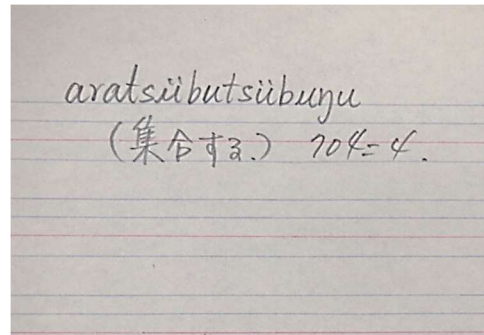 aratsïïbutsïïbuŋu
(集合する.) 704=4.